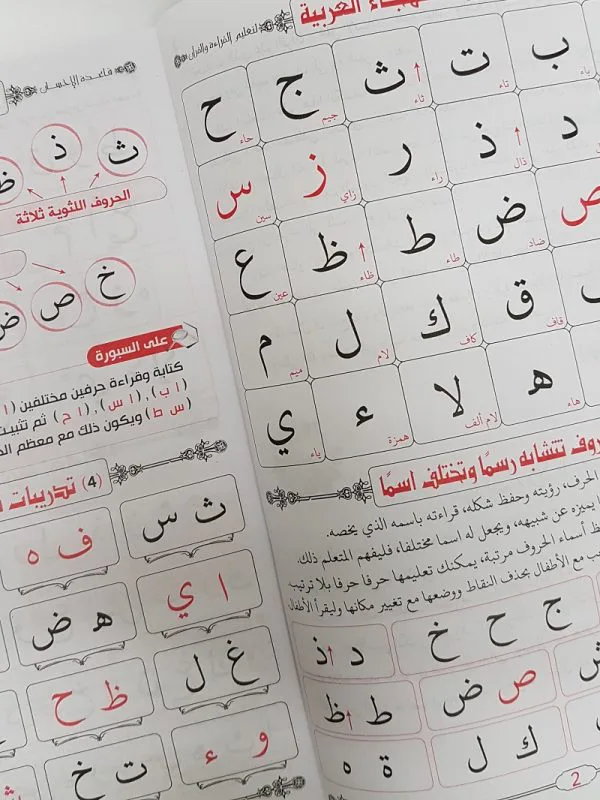 لتعليم القراءة والقرآن
ب ت ث ج ح
باء تاء ثاء جيم حاء
د ذ ر ز س
ذال راء زاي سين
ص ض ط ظ ع
ضاد طاء ظاء عين
ق ك ل م
قاف كاف لام ميم
ه لا ء ي
هاء لام ألف همزة ياء
تتشابه رسمًا وتختلف اسمًا
الحرف، رؤيته وحفظ شكله، قراءته باسمه الذي يخصه.
يميزه عن شبيهه، ويجعل له اسما مختلفا، فليفهم المتعلم ذلك.
أسماء الحروف مرتبة، يمكنك تعليمها حرفا حرفا بلا ترتيب
مع الأطفال بحذف النقاط ووضعها مع تغيير مكانها وليقرأ الأطفال
ج ح خ
د ذ
ص ض
ط ظ
ك ل
ة ه
2
قاعدة الإحسان
ث ذ ظ
الحروف اللثوية ثلاثة
خ ص ض
على السبورة
كتابة وقراءة حرفين مختلفين (ا
(ا ب)، (ا س)، (ا ح) ثم تثبيت
(س ط) ويكون ذلك مع معظم
(4) تدريبات
ث س
ف ه
ا ي
ه ض
غ ل
ظ ح
و ء
ت خ